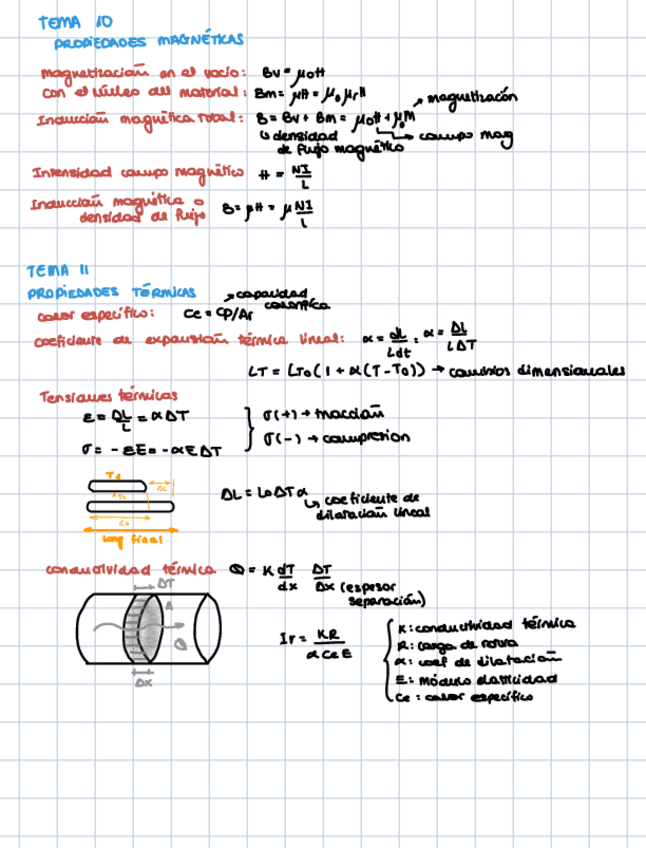 TEMA 10
PROPIEDADES MAGNÉTICAS
magnetización en el vacío: Bv = μ0H
con el núcleo del material: Bm = μH = μ0μrH
Inducción magnética total: B = Bv + Bm = μ0H + μ0M
→ magnetización
→ campo mag
↳ densidad de flujo magnético
Intensidad campo magnético H = NI/L
Inducción magnética o densidad de flujo B = μH = μ NI/L
TEMA 11
PROPIEDADES TÉRMICAS
→ capacidad calorífica
calor específico: Ce = CP/Ar
coeficiente de expansión térmica lineal: α = dL/Ldt ; α = ΔL/LΔT
LT = LT0(1 + α(T-T0)) → cambios dimensionales
Tensiones térmicas
ε = ΔL/L = αΔT
σ(+) → tracción
σ(-) → compresion
σ = -εE = -αEΔT
ΔL
L0
long final
ΔL = L0ΔTα
↳ coeficiente de dilatación lineal
conductividad térmica Q = K dT/dx ΔT/Δx (espesor separación)
ΔT
A
Q
Δx
Ir = KR/αCeE
K: conductividad térmica
R: carga de rotura
α: coef de dilatación
E: módulo elasticidad
Ce: calor específico